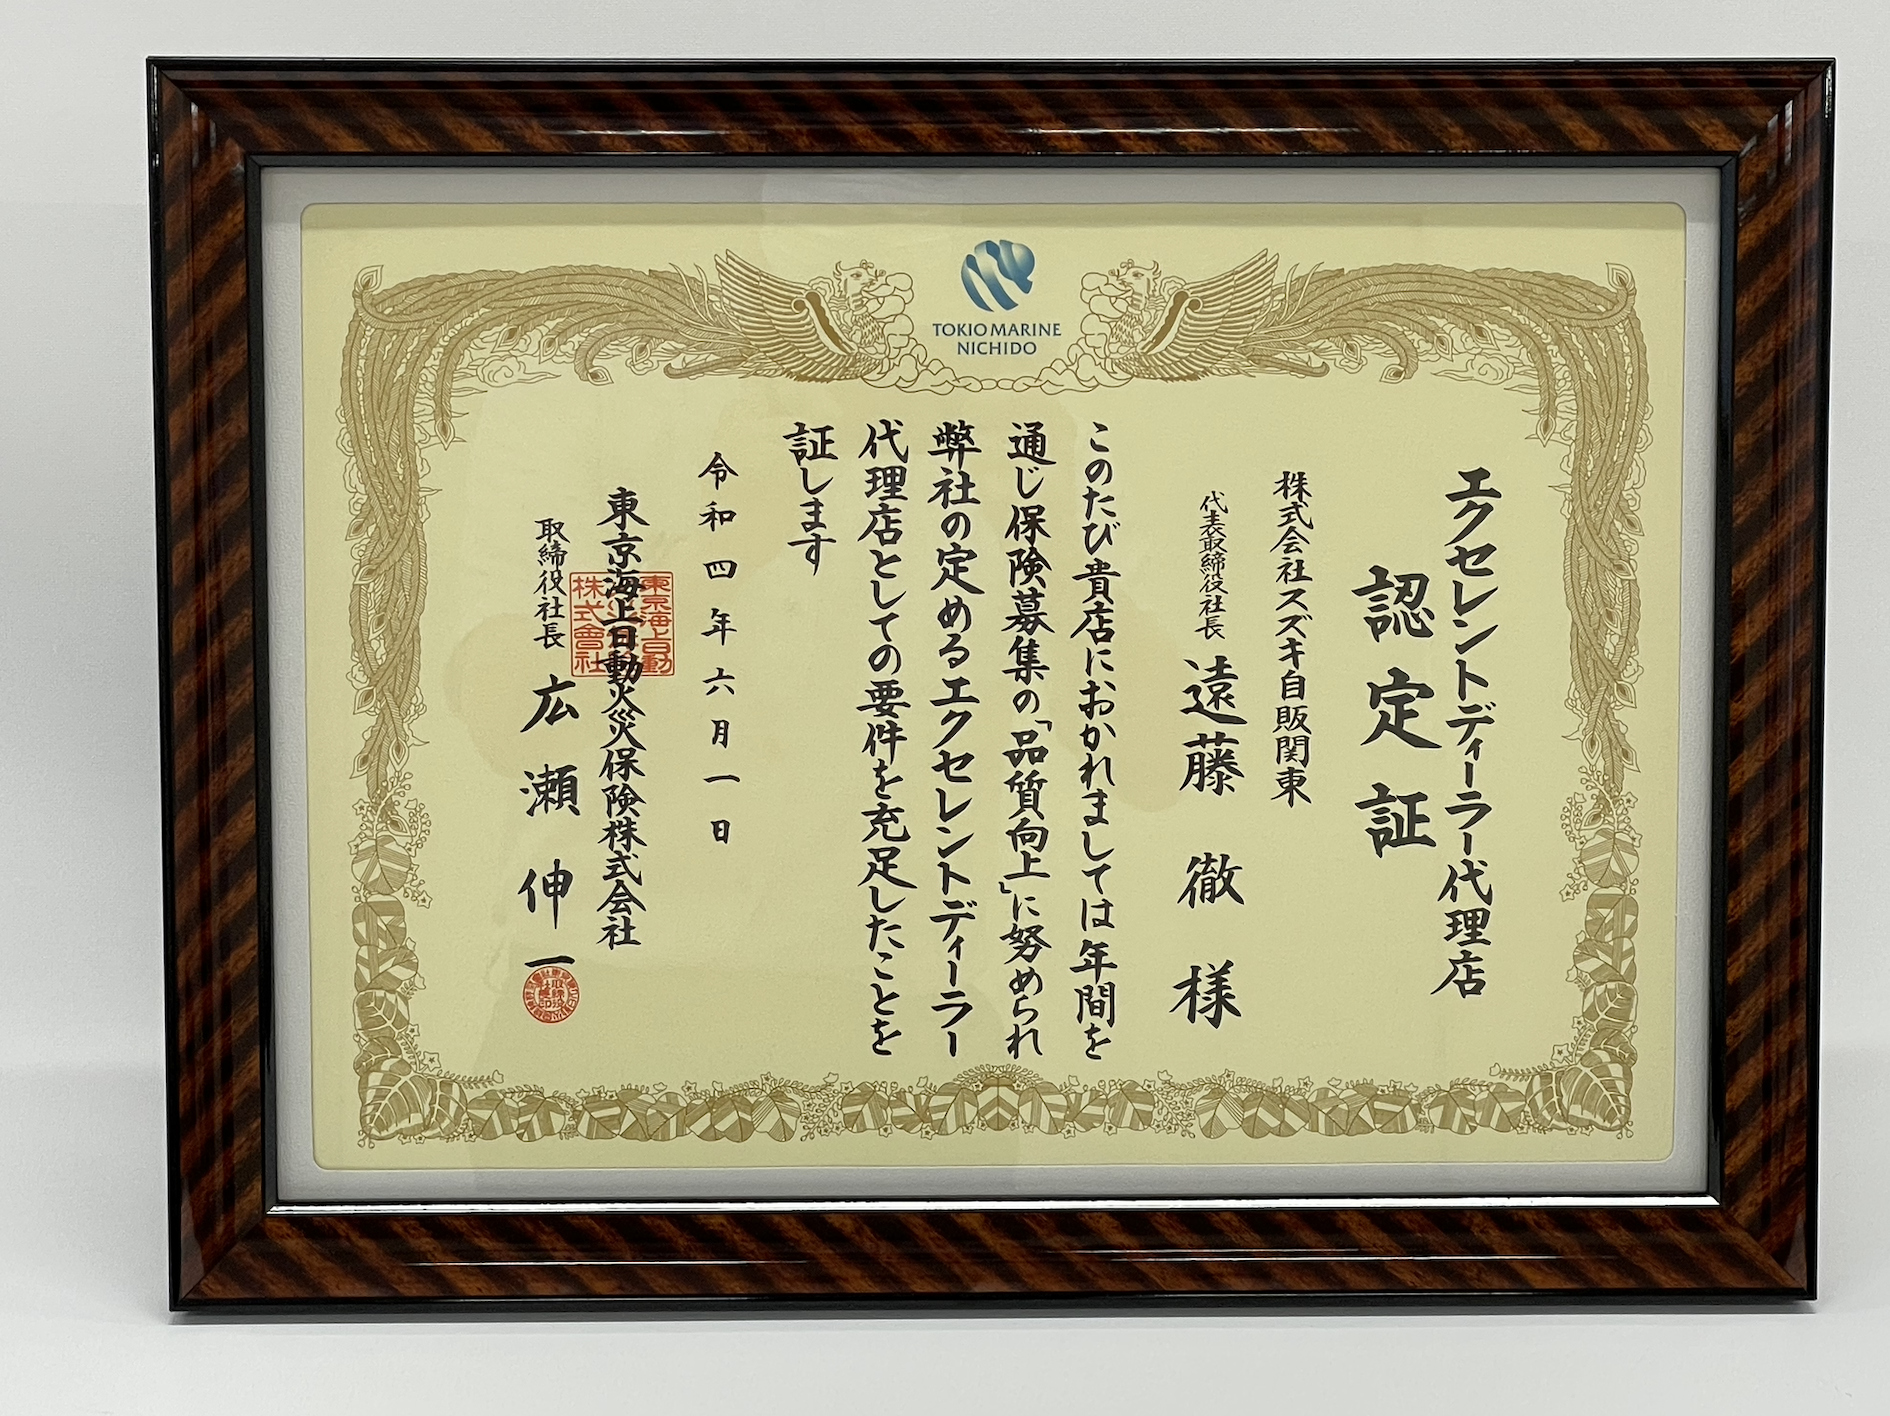 TOKIO MARINE
NICHIDO
エクセレントディーラー代理店
認定証
株式会社スズキ自販関東
代表取締役社長 遠藤 徹 様
このたび貴店におかれましては年間を
通じ保険募集の「品質向上」に努められ
弊社の定めるエクセレントディーラー
代理店としての要件を充足したことを
証します
令和四年六月一日
東京海上日動火災保険株式会社
取締役社長 広瀬伸一